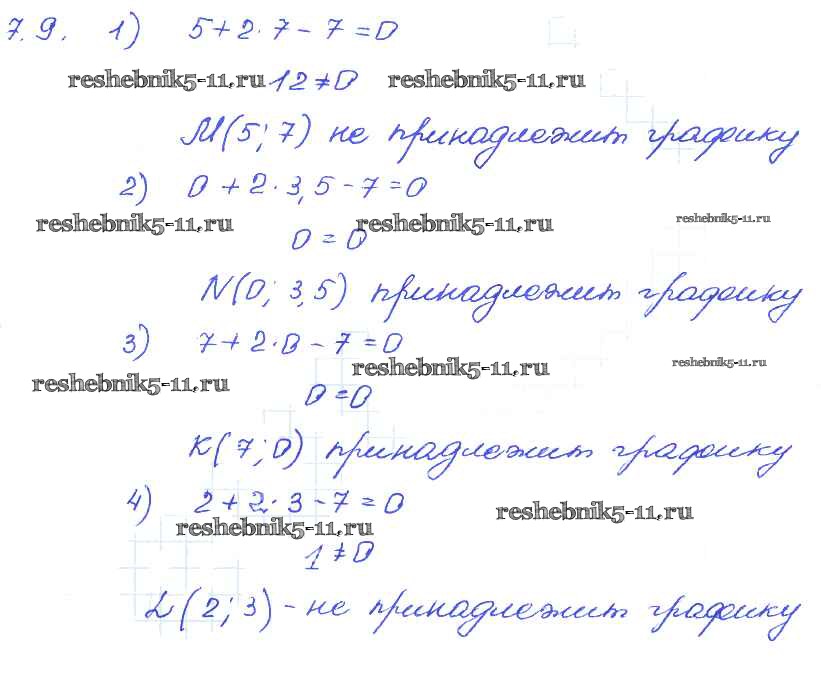 7.9. 1) 5+2·7-7=0
reshebnik5-11.ru 12≠0 reshebnik5-11.ru
M(5;7) не принадлежит графику
2) 0+2·3,5-7=0
reshebnik5-11.ru reshebnik5-11.ru reshebnik5-11.ru
0=0
N(0; 3,5) принадлежит графику
3) 7+2·0-7=0
reshebnik5-11.ru reshebnik5-11.ru reshebnik5-11.ru
0=0
K(7;0) принадлежит графику
4) 2+2·3-7=0
reshebnik5-11.ru reshebnik5-11.ru
1≠0
L(2;3) - не принадлежит графику